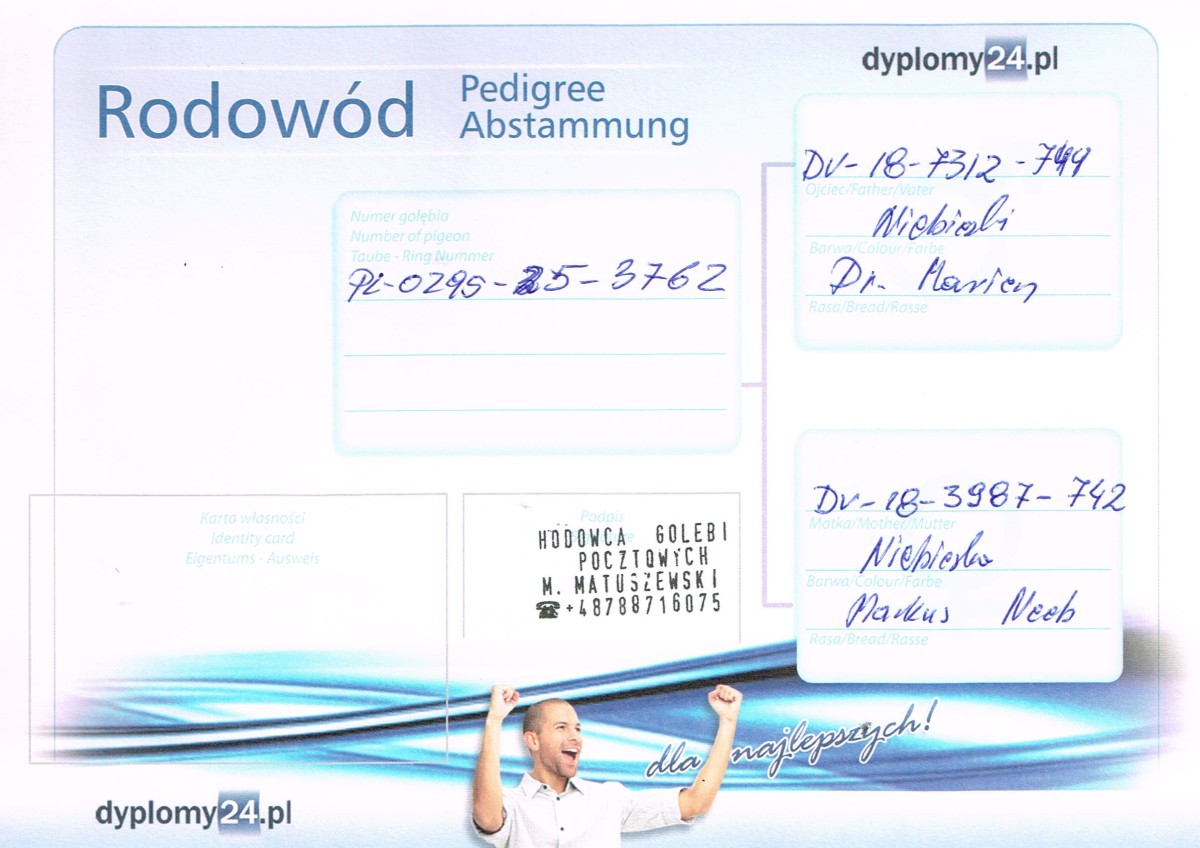 dyplomy24.pl
Rodowód
Pedigree
Abstammung
Numer gołębia
Number of pigeon
Taube - Ring Nummer
PL-0295-25-3762
DV-18-7312-749
Ojciec/Father/Vater
Niebieski
Barwa/Colour/Farbe
Dr. Marien
Rasa/Bread/Rasse
DV-18-3987-742
Matka/Mother/Mutter
Niebieska
Barwa/Colour/Farbe
Markus Neeb
Rasa/Bread/Rasse
Karta własności
Identity card
Eigentums - Ausweis
Podpis
HODOWCA GOLEBI
POCZTOWYCH
M. MATUSZEWSKI
☎+48788716075
dla najlepszych!
dyplomy24.pl